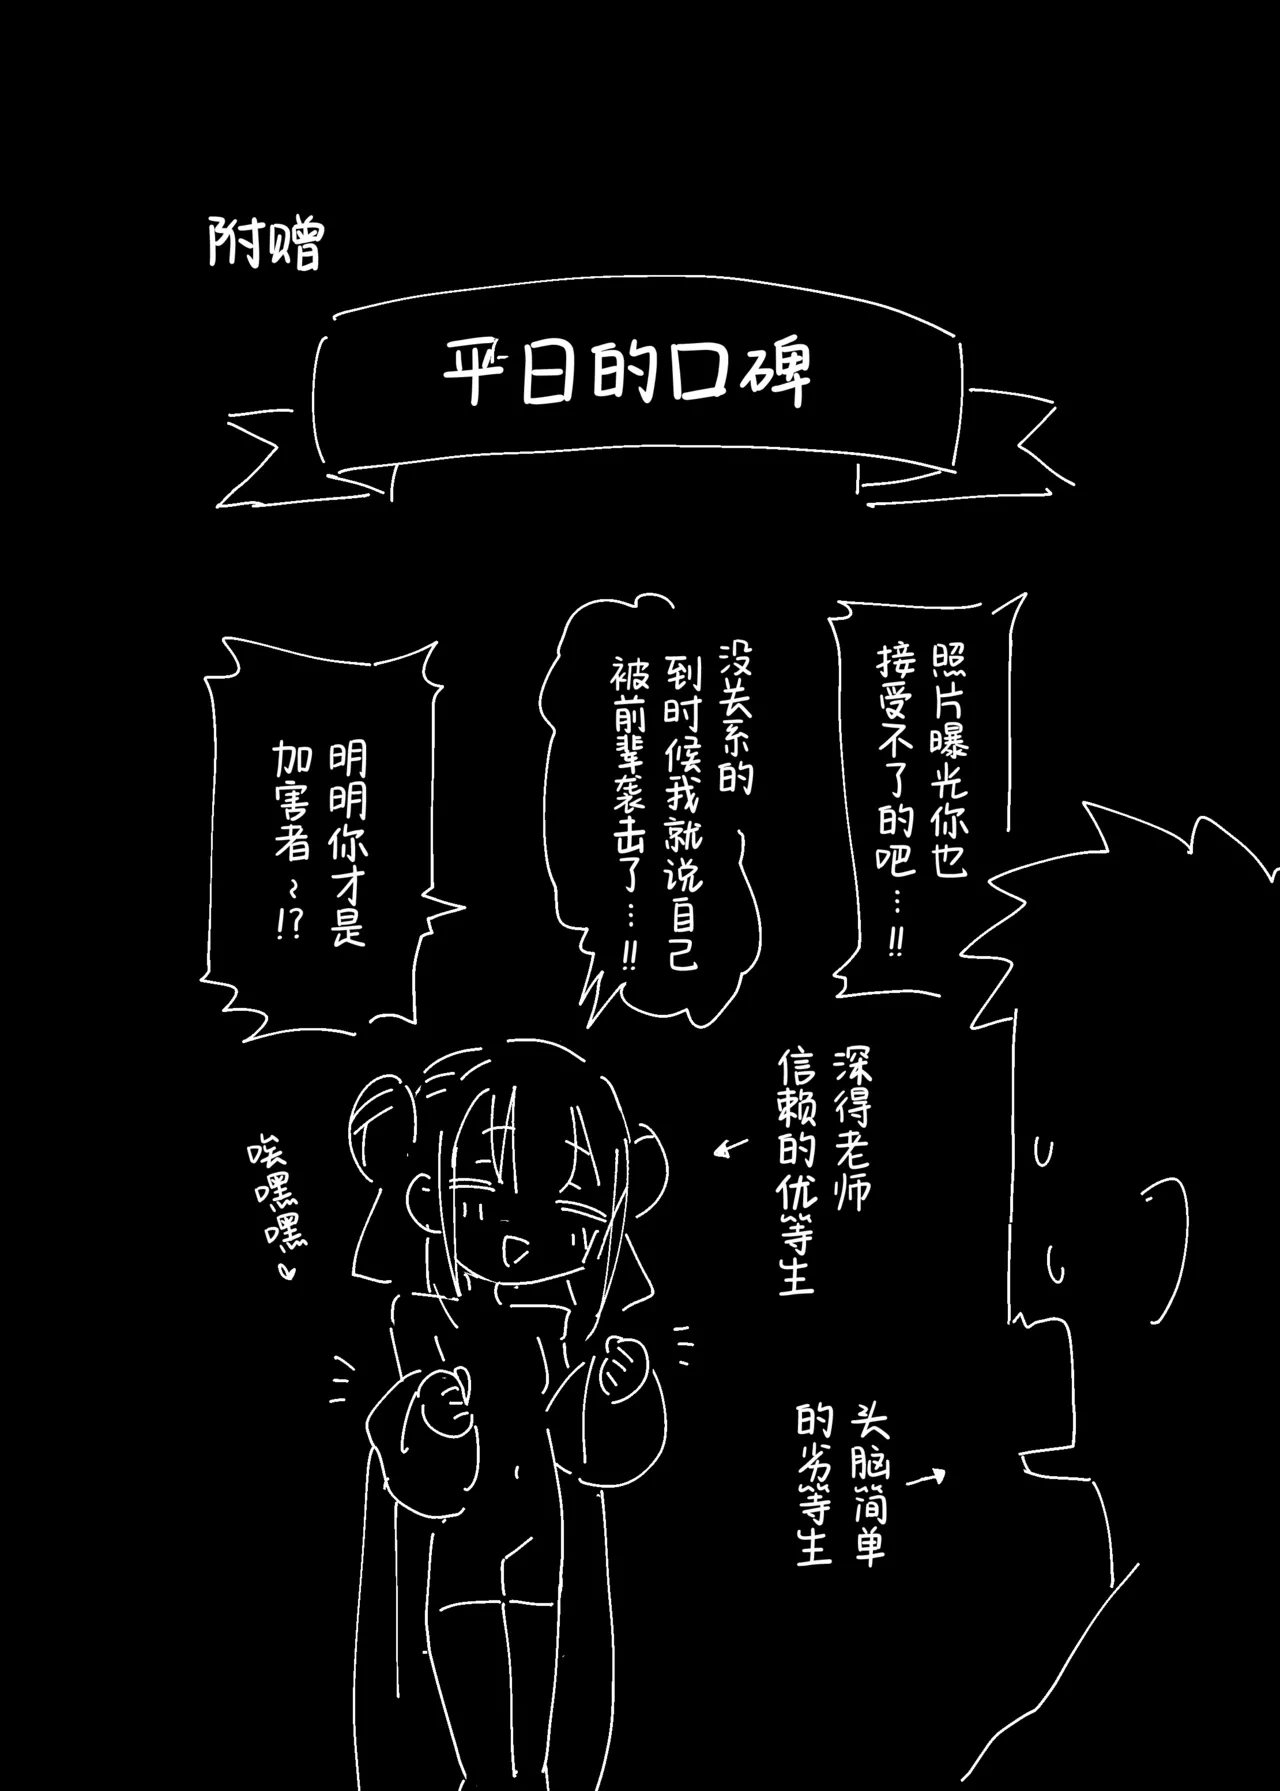 附赠
平日的口碑
照片曝光你也
接受不了的吧…!!
没关系的
到时候我就说自己
被前辈袭击了…!!
明明你才是
加害者~!?
深得老师
信赖的优等生
唉嘿嘿♡
头脑简单
的劣等生